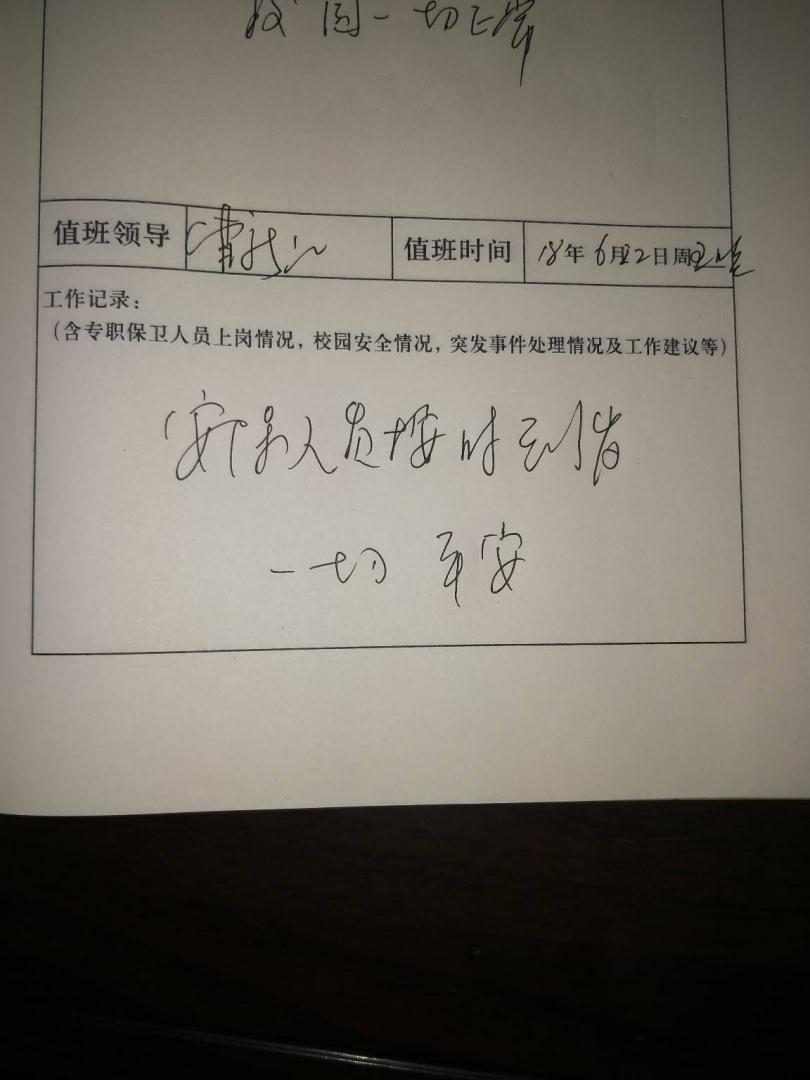 校园一切正常
值班领导 值班时间 18年6月22日周五
工作记录：
（含专职保卫人员上岗情况，校园安全情况，突发事件处理情况及工作建议等）
安保人员按时到岗
一切平安